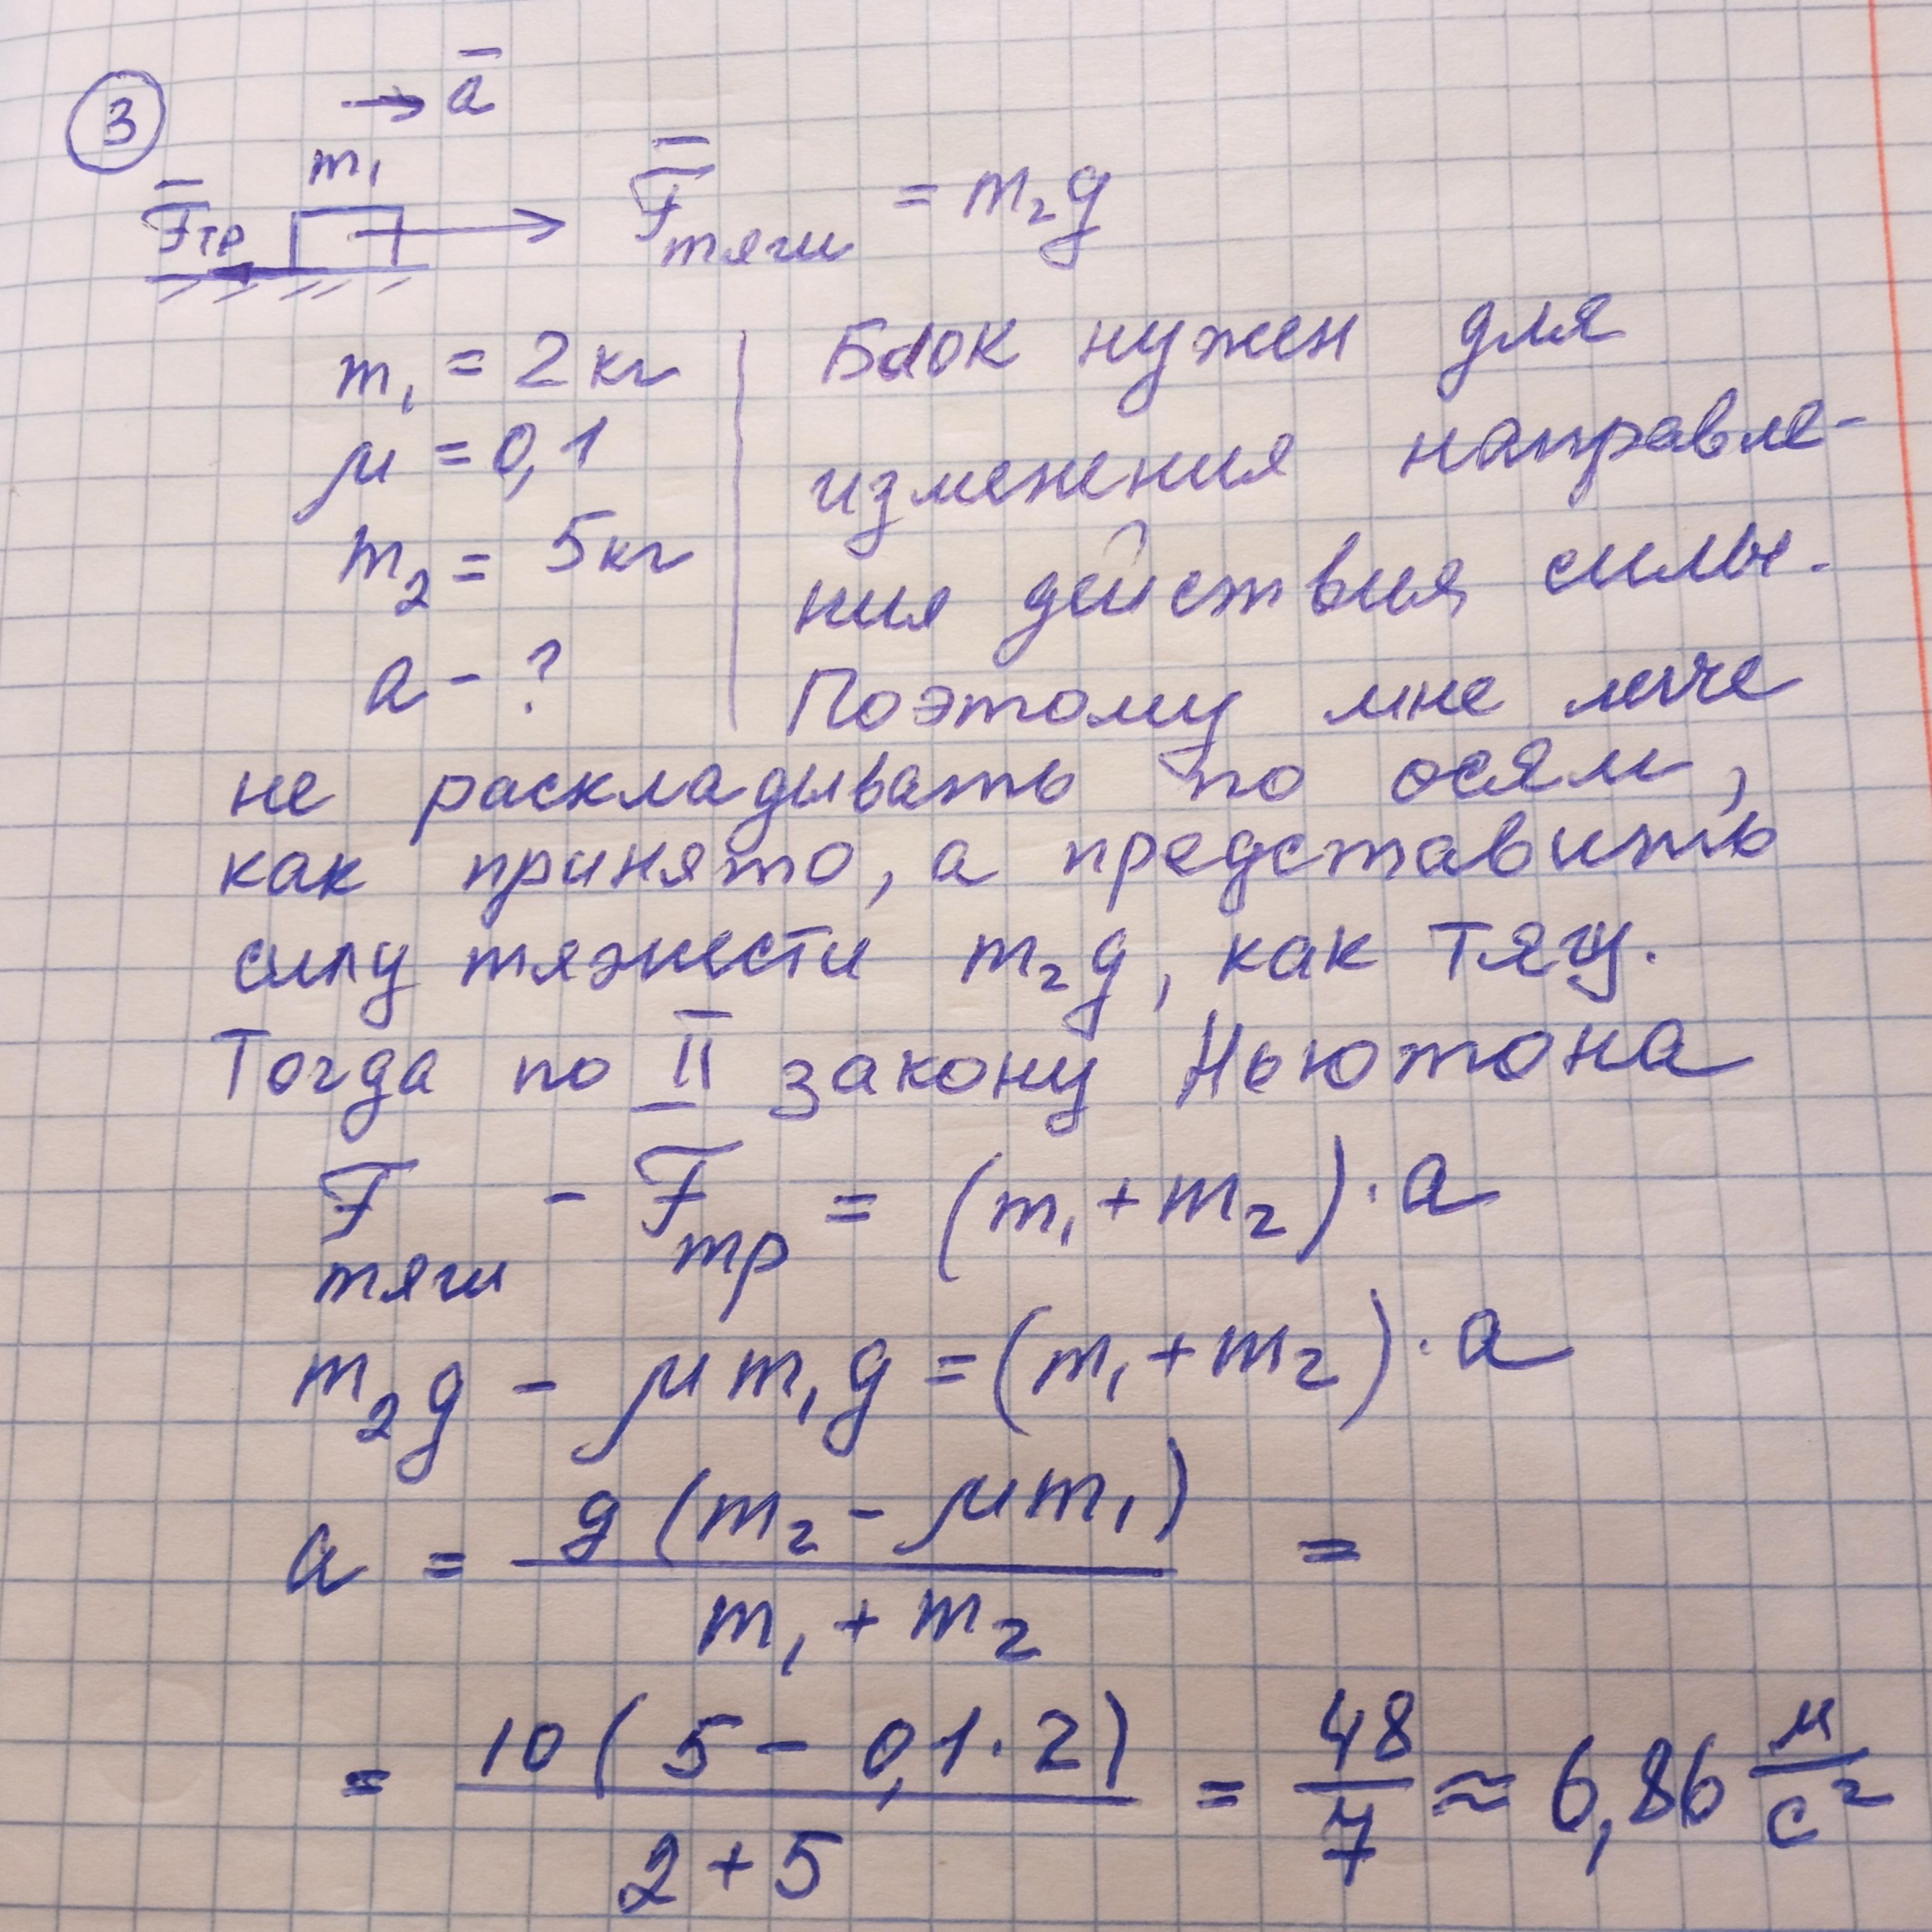 3
→ a̅
m₁
F̅тр
F̅тяги = m₂g
m₁ = 2 кг
μ = 0,1
m₂ = 5 кг
a - ?
Блок нужен для
изменения направле-
ния действия силы.
Поэтому мне легче
не раскладывать по осям,
как принято, а представить
силу тяжести m₂g, как тягу.
Тогда по II закону Ньютона
Fтяги - Fтр = (m₁ + m₂) · a
m₂g - μm₁g = (m₁ + m₂) · a
a = g(m₂ - μm₁) / (m₁ + m₂) =
= 10(5 - 0,1 · 2) / (2 + 5) = 48/7 ≈ 6,86 м/с²